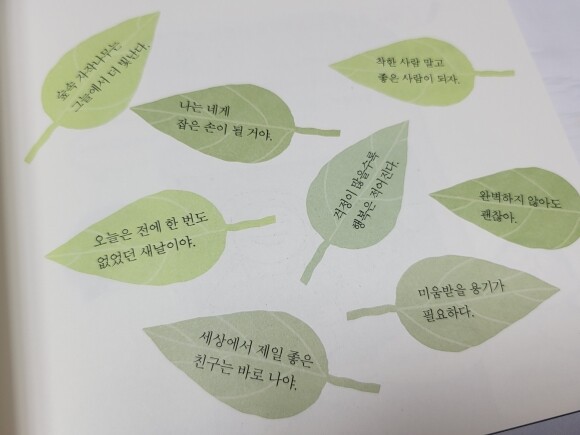 숲속 자작나무는
그늘에서 더 빛난다.
나는 네게
잡은 손이 될 거야.
착한 사람 말고
좋은 사람이 되자.
걱정이 많을수록
행복은 적어진다.
완벽하지 않아도
괜찮아.
오늘은 전에 한 번도
없었던 새날이야.
미움받을 용기가
필요하다.
세상에서 제일 좋은
친구는 바로 나야.